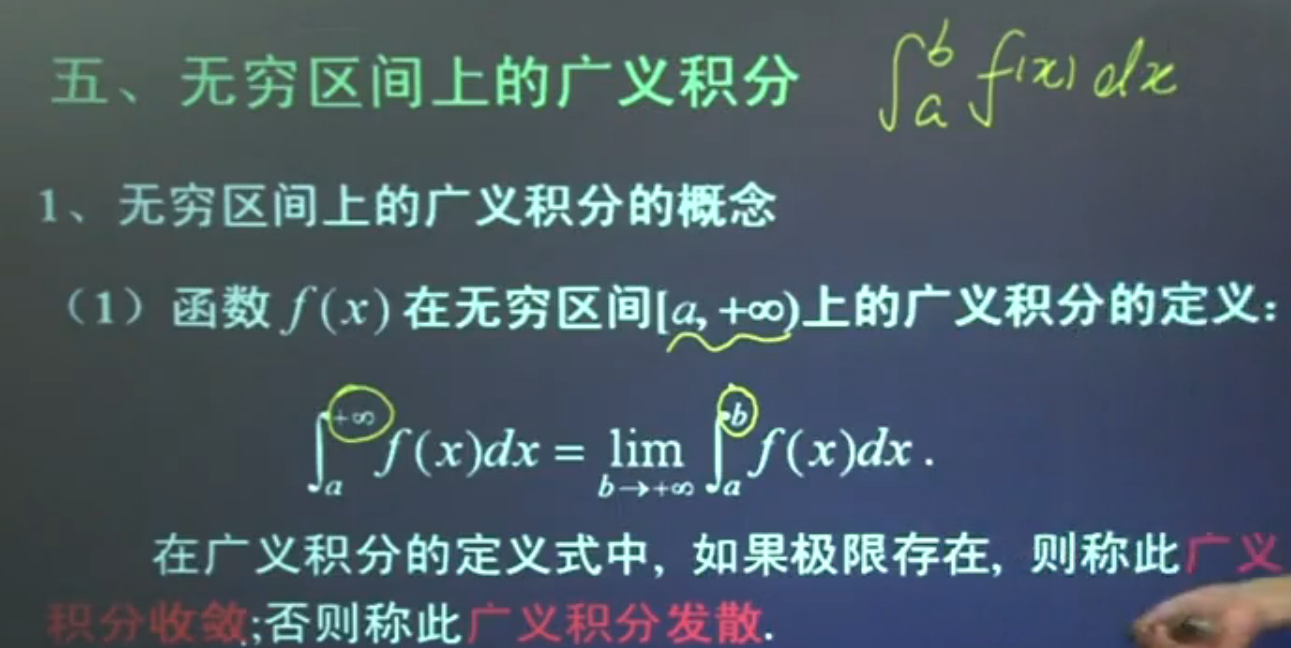 五、无穷区间上的广义积分 ∫_a^b f(x) dx
1、无穷区间上的广义积分的概念
（1）函数 f(x) 在无穷区间[a, +∞)上的广义积分的定义：
∫_a^{+∞} f(x)dx = lim_{b→+∞} ∫_a^b f(x)dx .
在广义积分的定义式中, 如果极限存在, 则称此广义
积分收敛;否则称此广义积分发散.